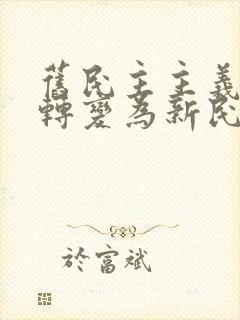 舊民主主義
轉變為新民
於富斌